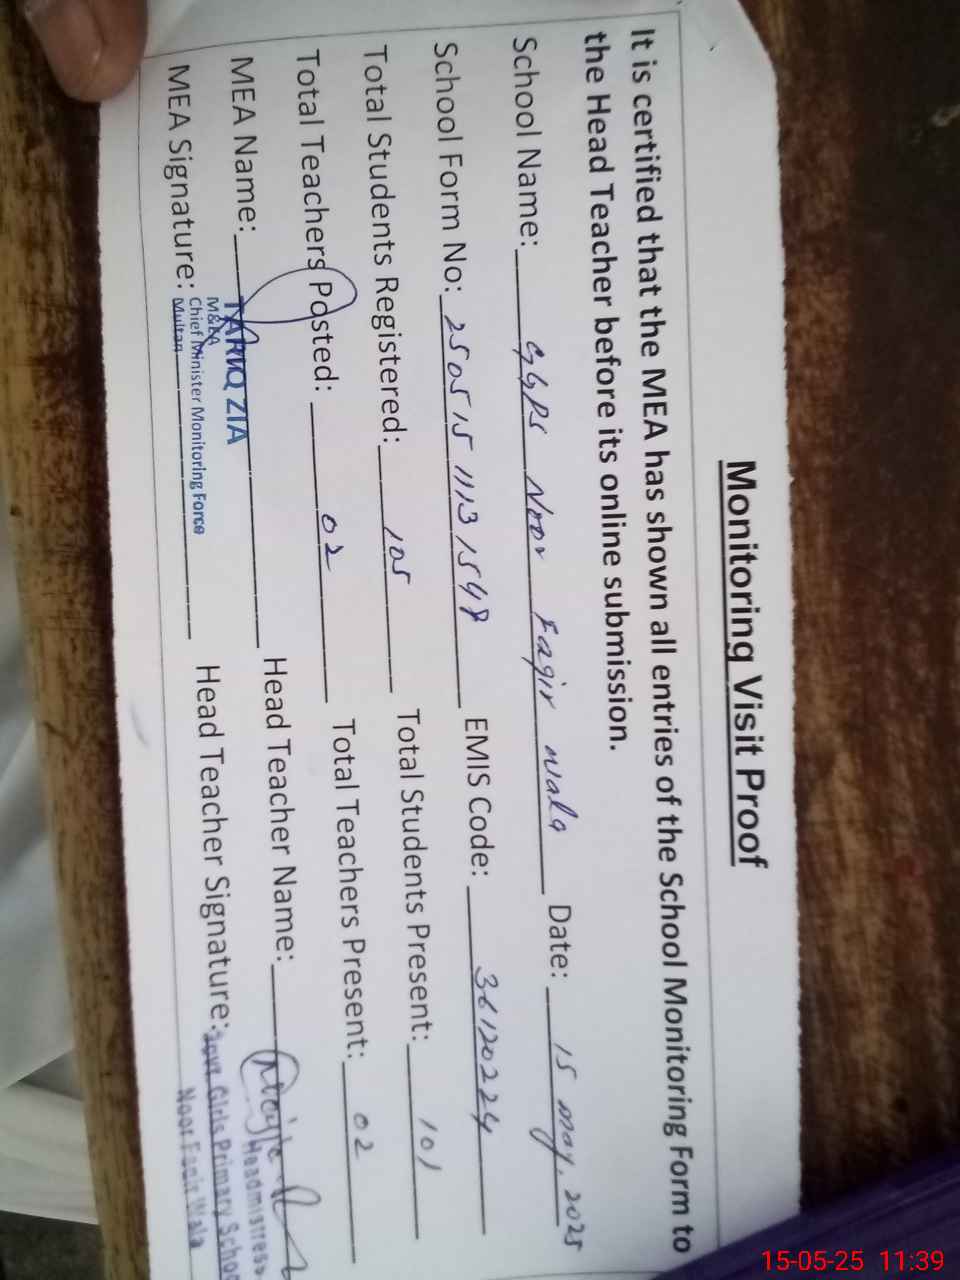 Monitoring Visit Proof
It is certified that the MEA has shown all entries of the School Monitoring Form to
the Head Teacher before its online submission.
School Name: GGPS Noor Faqir wala Date: 15 may, 2025
School Form No: 250515 11131548 EMIS Code: 36120224
Total Students Registered: 105 Total Students Present: 101
Total Teachers Posted: 02 Total Teachers Present: 02
MEA Name: TARIQ ZIA Head Teacher Name:
M&EA
Chief Minister Monitoring Force
Multan
MEA Signature: Head Teacher Signature:
Headmistress
Govt. Girls Primary School
Noor Faqir Wala
15-05-25 11:39